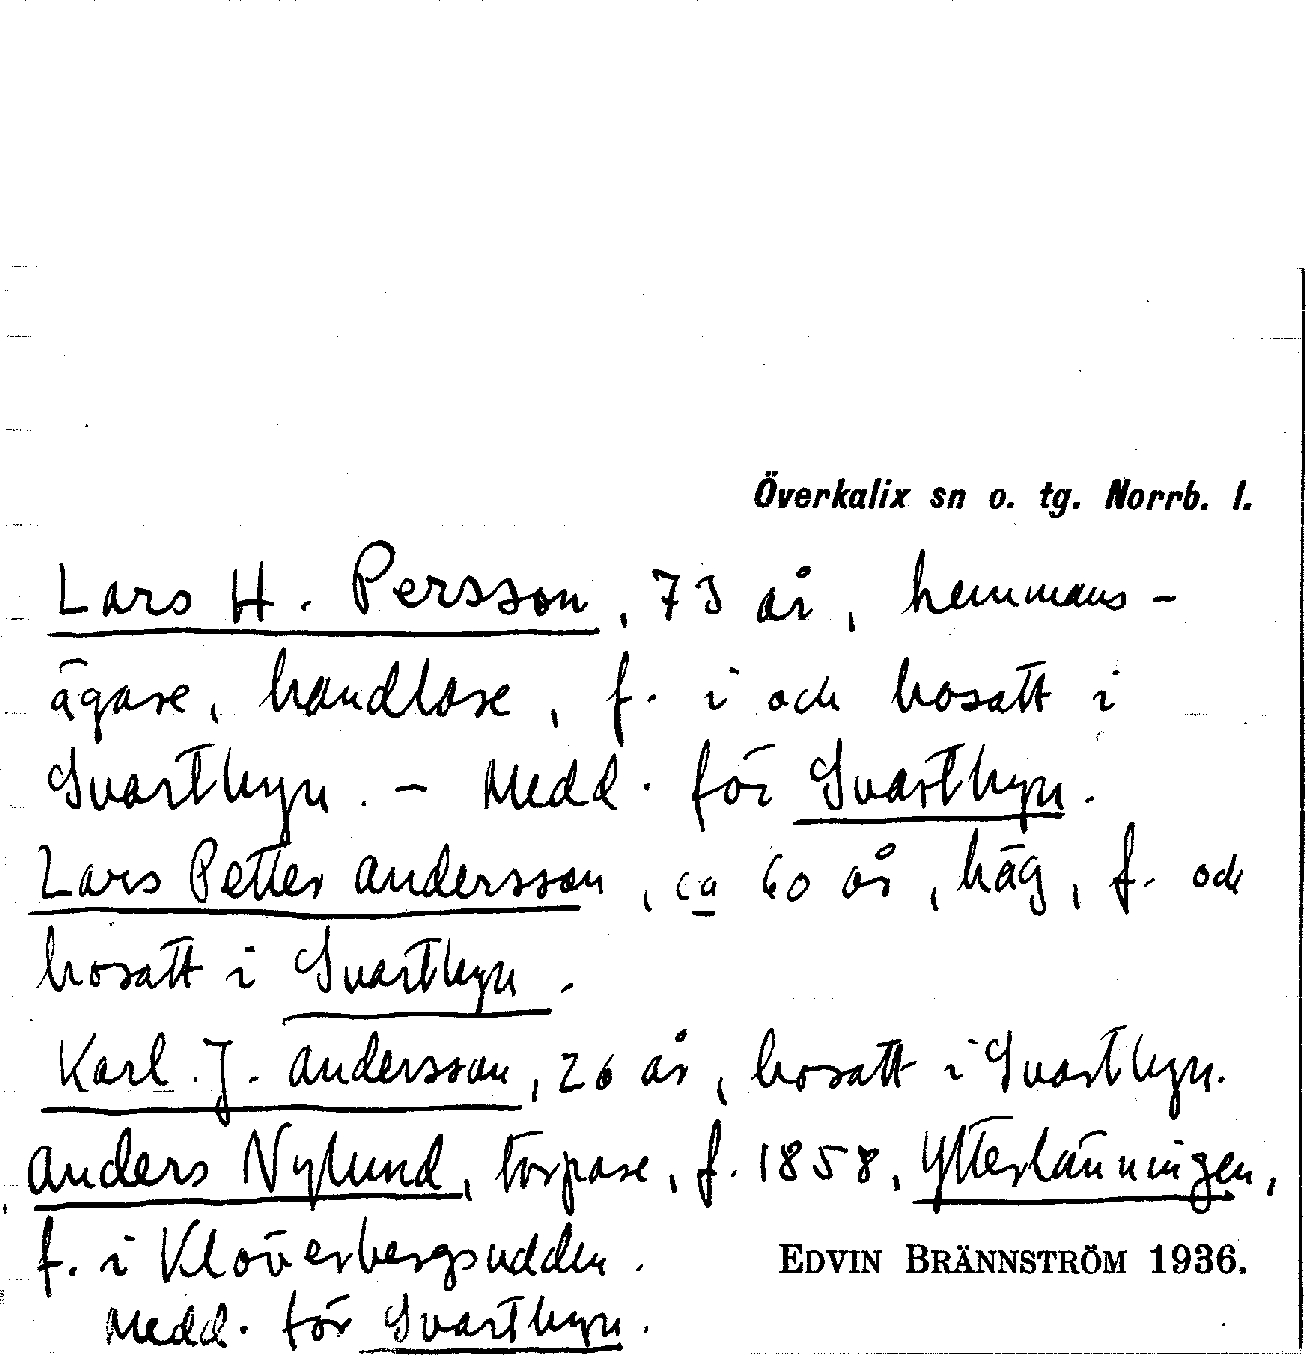 Överkalix sn o. tg. Norrb. l.
Lars H. Persson, 73 år, hemmans-
ägare, handlare, f. i och bosatt i
Svartbyn. - Medd. för Svartbyn.
Lars Petter Andersson, ca 60 år, häg, f. och
bosatt i Svartbyn.
Karl J. Andersson, 26 år, bosatt i Svartbyn.
Anders Nylund, torpare, f. 1858, Ytterlänningen,
f. i Klöverbergsudden.
EDVIN BRÄNNSTRÖM 1936.
Medd. för Svartbyn.